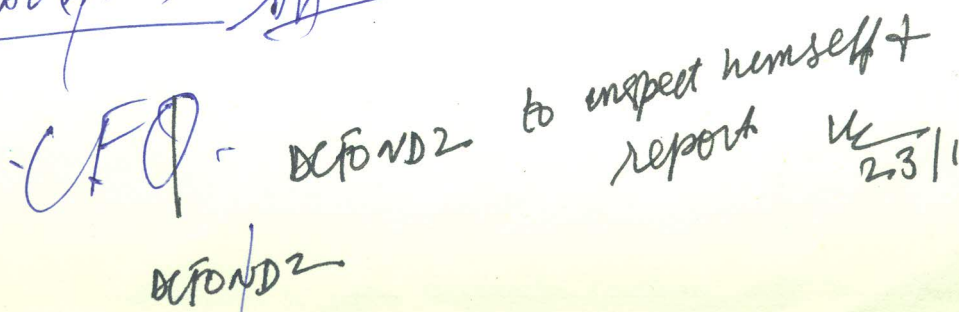 CFO
DCFO ND2 to inspect himself +
report
23/1
DCFO ND2